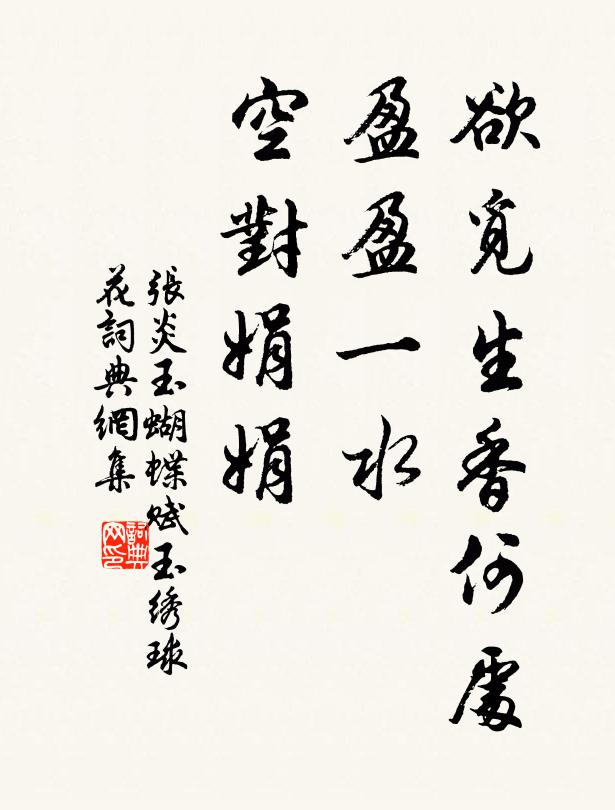 欲觅生香何處
盈盈一水
空對娟娟
張炎玉蝴蝶賦玉绣球
花詞典網集
詞典网印